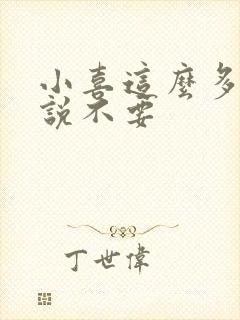 小喜這麼多
說不要
丁世偉